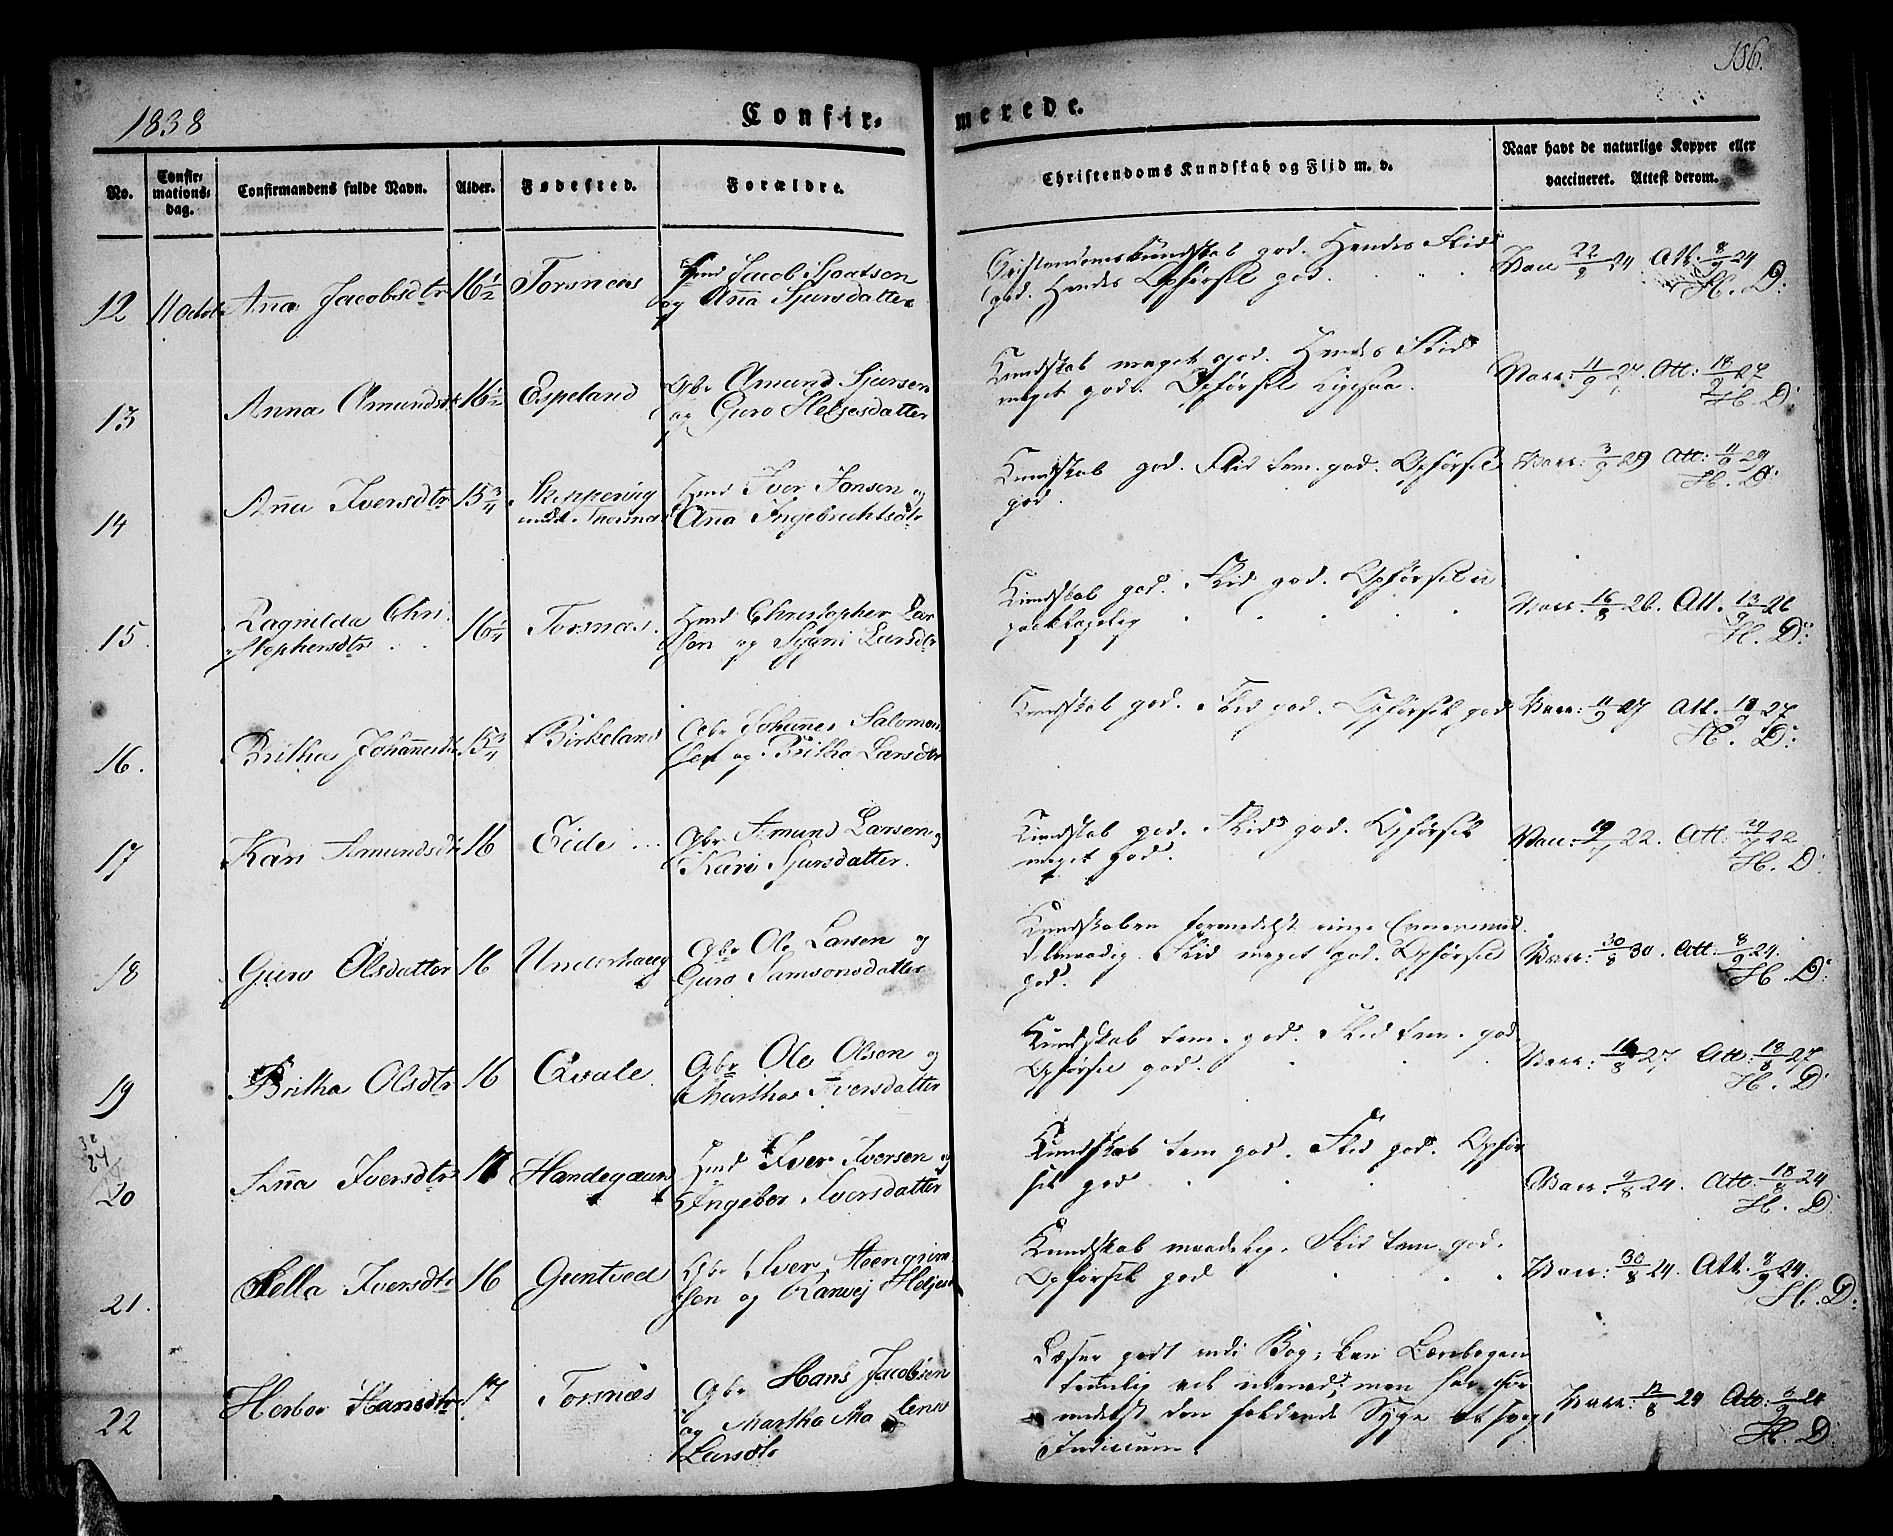 156.
1838
Confir-
merede.
No.
Confir-
mations-
dag.
Confirmandens fulde Navn.
Alder.
Fødested.
Forældre.
Christendoms Kundskab og Flid m. v.
Naar havt de naturlige Kopper eller
vaccineret. Attest derom.
12 11 Octob Anna Jacobsdtr 16½ Torsnæs
Hmd Jacob
og Anna Sjursdatter
Christendomskundskab god. Hendes Flid
god. Hendes Opførsel god.
Vacc 22/8 24 Att. 8/9 24
H. D:
13 Anna Amundsdtr 16½ Espeland
Gbr Amund Sjursen
og Guro Helgesdatter
Kundskab meget god. Hendes Flid
meget god. Opførsel ligesaa.
Vacc: 11/9 27. Att: 18/9 27
H. D:
14 Anna Iversdtr 15¾ Skeppering
under Thorsnæs
Hmd Iver Jonsen og
Anna Ingebrichtsdtr
Kundskab god. Flid tem. god. Opførsel
god.
Vacc: 3/9 29 Att: 11/9 29
H. D:
15. Ragnilda Chri-
stophersdtr 16¼ Torsnæs.
Hmd Christopher Lar-
sen og Sygni Larsdtr
Kundskab god. Flid god. Opførsel
Vacc. 16/8 26. Att. 13/9 26
H. D:
16. Britha Johannesdtr 15¾ Birkeland
Gbr Johannes Salomon-
sen og Britha Larsdtr
Kundskab god. Flid god. Opførsel god
Vacc: 11/9 27 Att. 19/9 27
H. D:
17 Kari Amundsdtr 16 Eide
Gbr Amund Larsen og
Kari Sjursdatter.
Kundskab god. Flid god. Opførsel
meget god.
Vacc: 19/7 22. Att: 29/7 22
H. D:
18 Guro Olsdatter 16 Underhaug
Gbr Ole Larsen og
Guro Samsonsdatter
Kundskaben formedelst ringe
Flid meget god. Opførsel
god.
Vacc: 30/8 30. Att. 8/9 24.
H. D:
19 Britha Olsdtr 16 Qvale.
Gbr Ole Olsen og
Martha Iversdatter
Kundskab tem. god. Flid tem. god
Opførsel god.
Vacc: 16/8 27 Att: 18/8 27
H. D:
20 Anna Iversdtr 17 Handegaard
Hmd Iver Iversen og
Ingebor Iversdatter
Kundskab tem god. Flid god. Opfør-
sel god
Vacc: 9/8 24. Att: 18/8 24
H. D:
21. Sella Iversdtr 16 Guntved
Gbr Iver Steengrim-
sen og Ranvej Heljesd
Kundskab maadelig. Flid tem. god.
Opførsel god
Vacc: 30/8 24. Att. 8/9 24.
H. D:
22 Herbor Hansdtr 17 Torsnæs
Gbr Hans Jacobsen
og Martha Ma lene
Larsdtr
Læser godt udi Bog, kan Lærebogen
men har for-
medelst den faldende Syge et svagt
Judicium.
Vacc: 12/8 24 Att: 8/9 24
H. D: